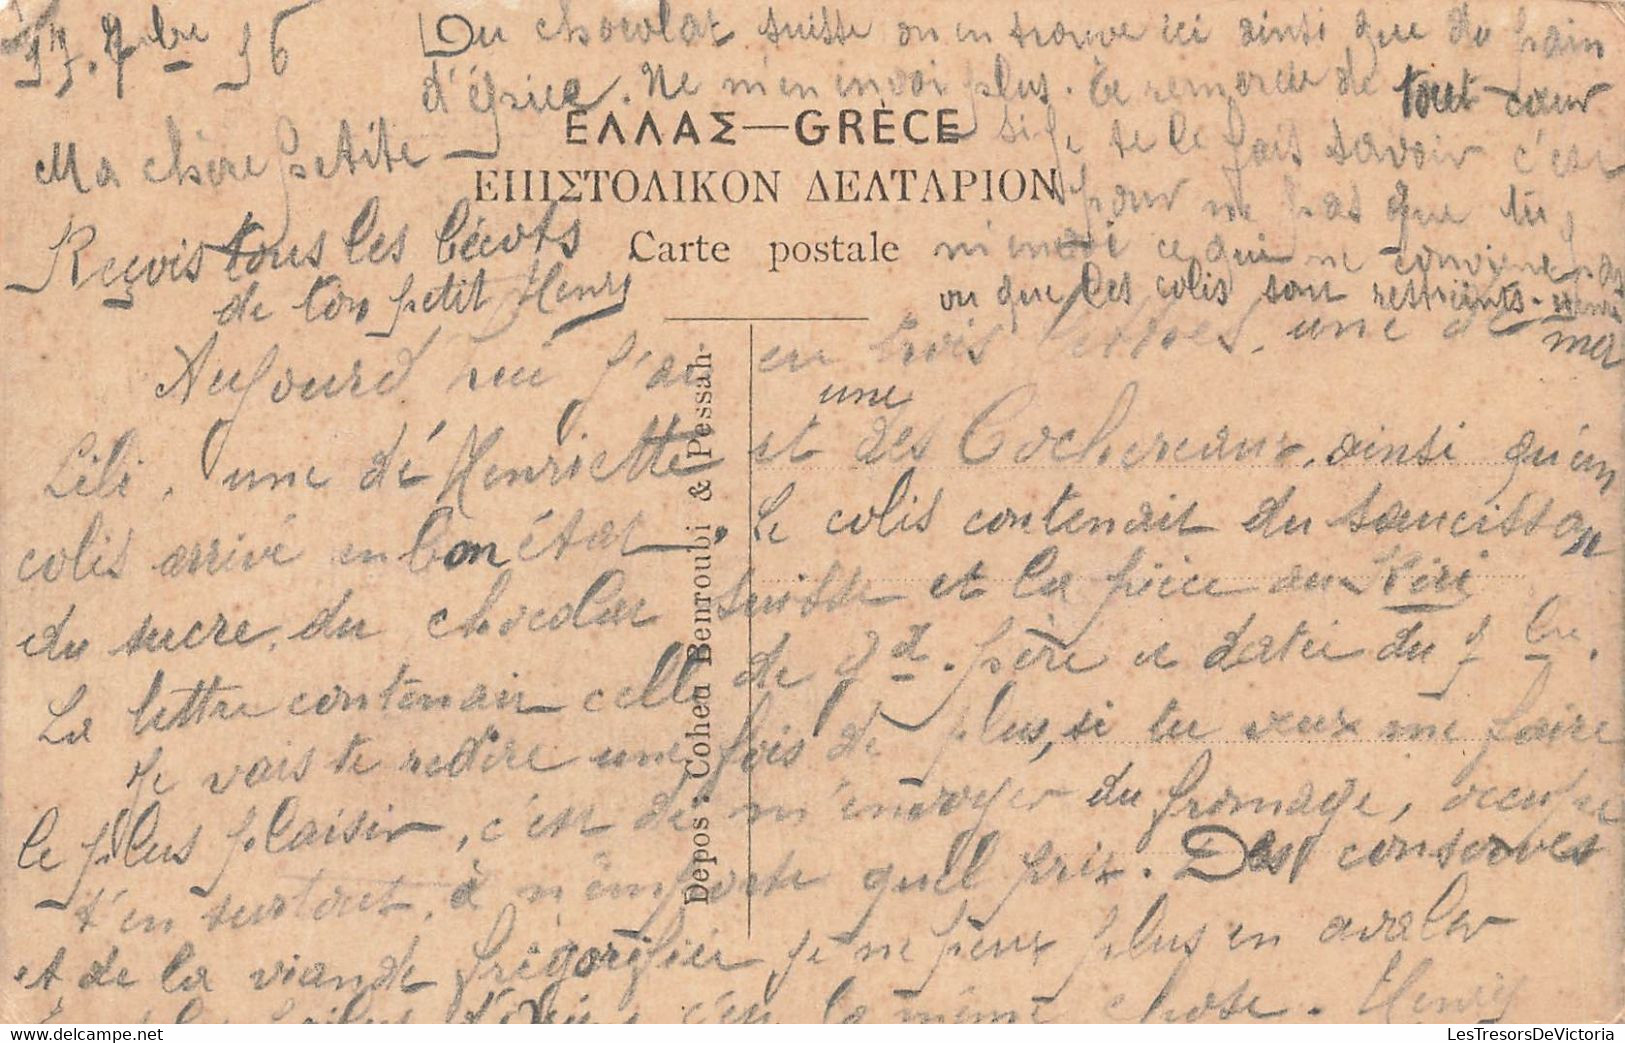 17. 7bre 16
Ma chère petite
Du chocolat suisse on en trouve ici ainsi que du pain
d'épice. Ne m'en envoi plus. Te remercie de tout cœur
si je te le fais savoir c'est
pour ne pas que tu
m'envoi ce qui ne convient pas
ou que les colis sont restreints. Henri
ΕΛΛΑΣ—GRÈCE
ΕΠΙΣΤΟΛΙΚΟΝ ΔΕΛΤΑΡΙΟΝ
Carte postale
Reçois tous les bécots
de ton petit Henry
Depos : Cohen Benroubi & Pessah-
Aujourd'hui j'ai eu trois lettres, une de
une
Lili, une de Henriette et des Cochereaux, ainsi qu'un
colis arrivé en bon état. Le colis contenait du saucisson
du sucre, du chocolat suisse et la pièce au Kiri
La lettre contenait celle de gd. père datée du 7 bre.
Je vais te redire une fois de plus, si tu veux me faire
le plus plaisir, c'est de m'envoyer du fromage, occupe
t'en surtout, à n'importe quel prix. Des conserves
et de la viande frégorifiée je ne peux plus en avaler
c'est la même chose. Henry
LesTresorsDeVictoria